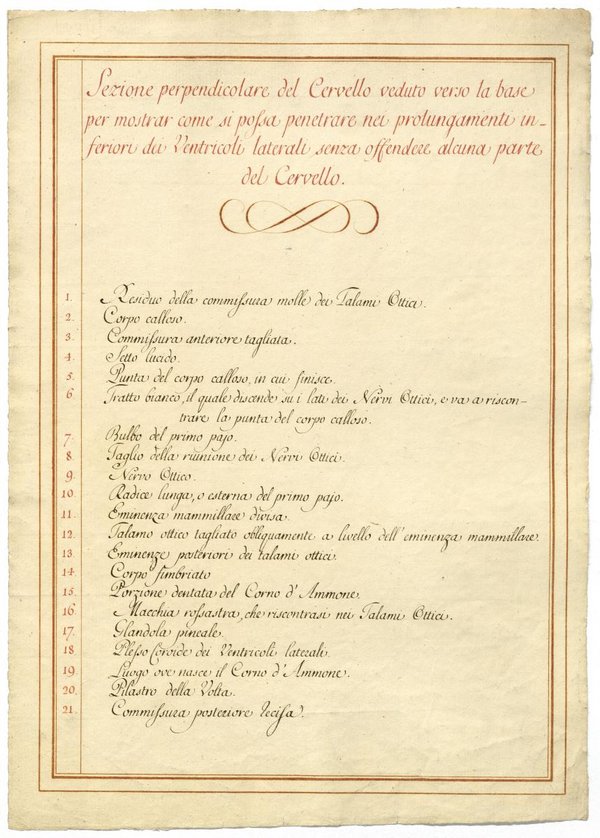 Sezione perpendicolare del Cervello veduto verso la base
per mostrar come si possa penetrare nei prolungamenti in-
feriori dei Ventricoli laterali senza offendere alcuna parte
del Cervello.
1. Residuo della commissura molle dei Talami Ottici.
2. Corpo calloso.
3. Commissura anteriore tagliata.
4. Setto lucido.
5. Punta del corpo calloso, in cui finisce.
6. Tratto bianco, il quale discende su i lati dei Nervi Ottici, e va a riscon-
trare la punta del corpo calloso.
7. Bulbo del primo pajo.
8. Taglio della riunione dei Nervi Ottici.
9. Nervo Ottico.
10. Radice lunga, o esterna del primo pajo.
11. Eminenza mammillare divisa.
12. Talamo ottico tagliato obliquamente a livello dell'eminenza mammillare.
13. Eminenze posteriori dei talami ottici.
14. Corpo fimbriato
15. Porzione dentata del Corno d'Ammone.
16. Macchia rossastra, che riscontrasi nei Talami Ottici.
17. Glandola pineale.
18. Plesso Coroide dei Ventricoli laterali.
19. Luogo ove nasce il Corno d'Ammone.
20. Pilastro della Volta.
21. Commissura posteriore recisa.